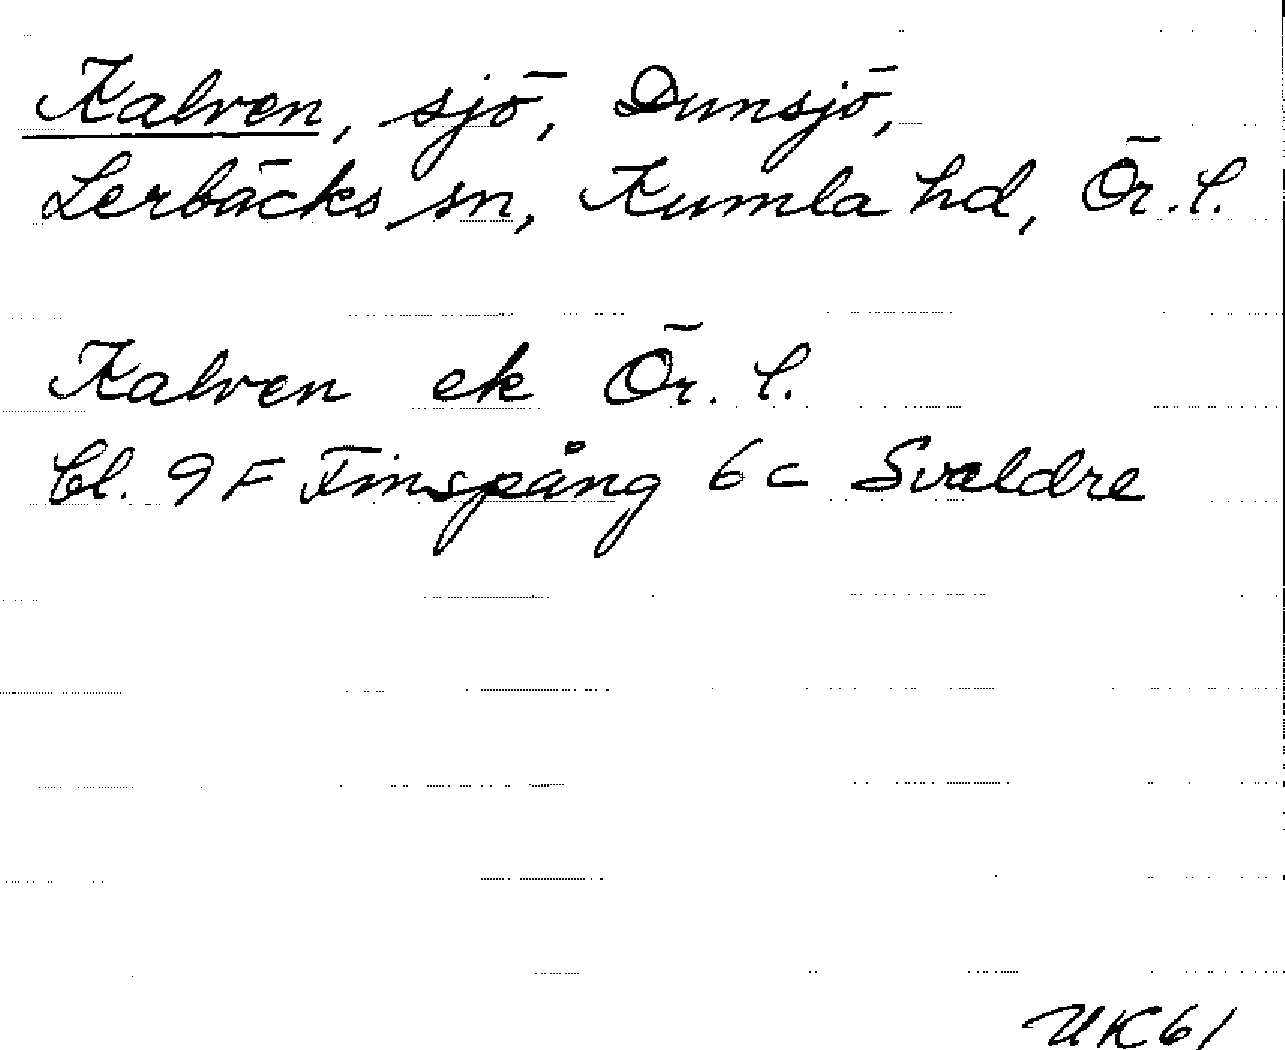 Kalven, sjö, Dunsjö,
Lerbäcks sn, Kumla hd, Ör. l.
Kalven ek Ör. l.
Bl. 9 F Finspång 6 c Svaldre
UK 61